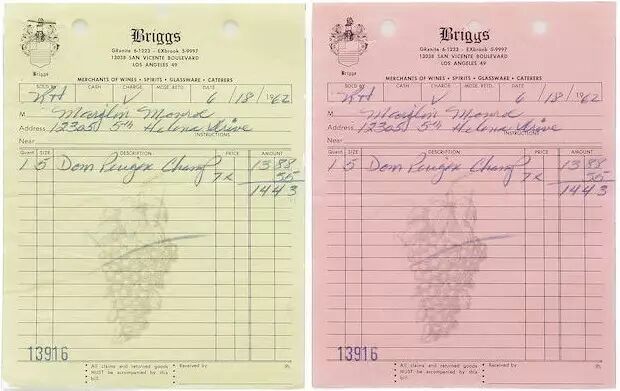 Briggs
GRanite 6-1223 - EXbrook 5-9997
13038 SAN VICENTE BOULEVARD
LOS ANGELES 49
Briggs
MERCHANTS OF WINES • SPIRITS • GLASSWARE • CATERERS
SOLD BY CASH CHARGE MDSE. RETD. DATE
6/18/1962
M Marilyn Monro
Address 12305 5th Helena Drive
INSTRUCTIONS
Near
Quant. SIZE DESCRIPTION PRICE AMOUNT
1 5 Dom Perigex Champ 13 88
7x 55
14 43
13916
All claims and returned goods MUST be accompanied by this bill.
Received by
Briggs
GRanite 6-1223 - EXbrook 5-9997
13038 SAN VICENTE BOULEVARD
LOS ANGELES 49
Briggs
MERCHANTS OF WINES • SPIRITS • GLASSWARE • CATERERS
SOLD BY CASH CHARGE MDSE. RETD. DATE
6/18/1962
M Marilyn Monro
Address 12305 5th Helena Drive
INSTRUCTIONS
Near
Quant. SIZE DESCRIPTION PRICE AMOUNT
1 5 Dom Perigex Champ 13 88
7x 55
14 43
13916
All claims and returned goods MUST be accompanied by this bill.
Received by